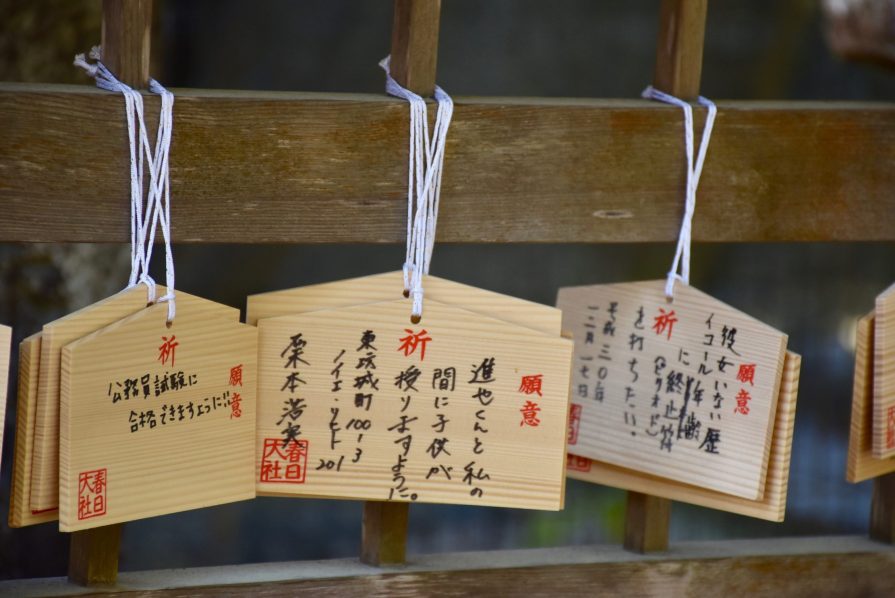 祈
願意
公務員試験に
合格できますように!!
春日
大社
願意
祈
進也くんと私の
間に子供が
授りますように。
東坊城町100-3
ノイエ・リヒト 201
栗本
春日
大社
願意
祈
彼女いない歴
イコール年齢
に終止符
(ピリオド)
を打ちたい。
平成三〇年
一二月一七日